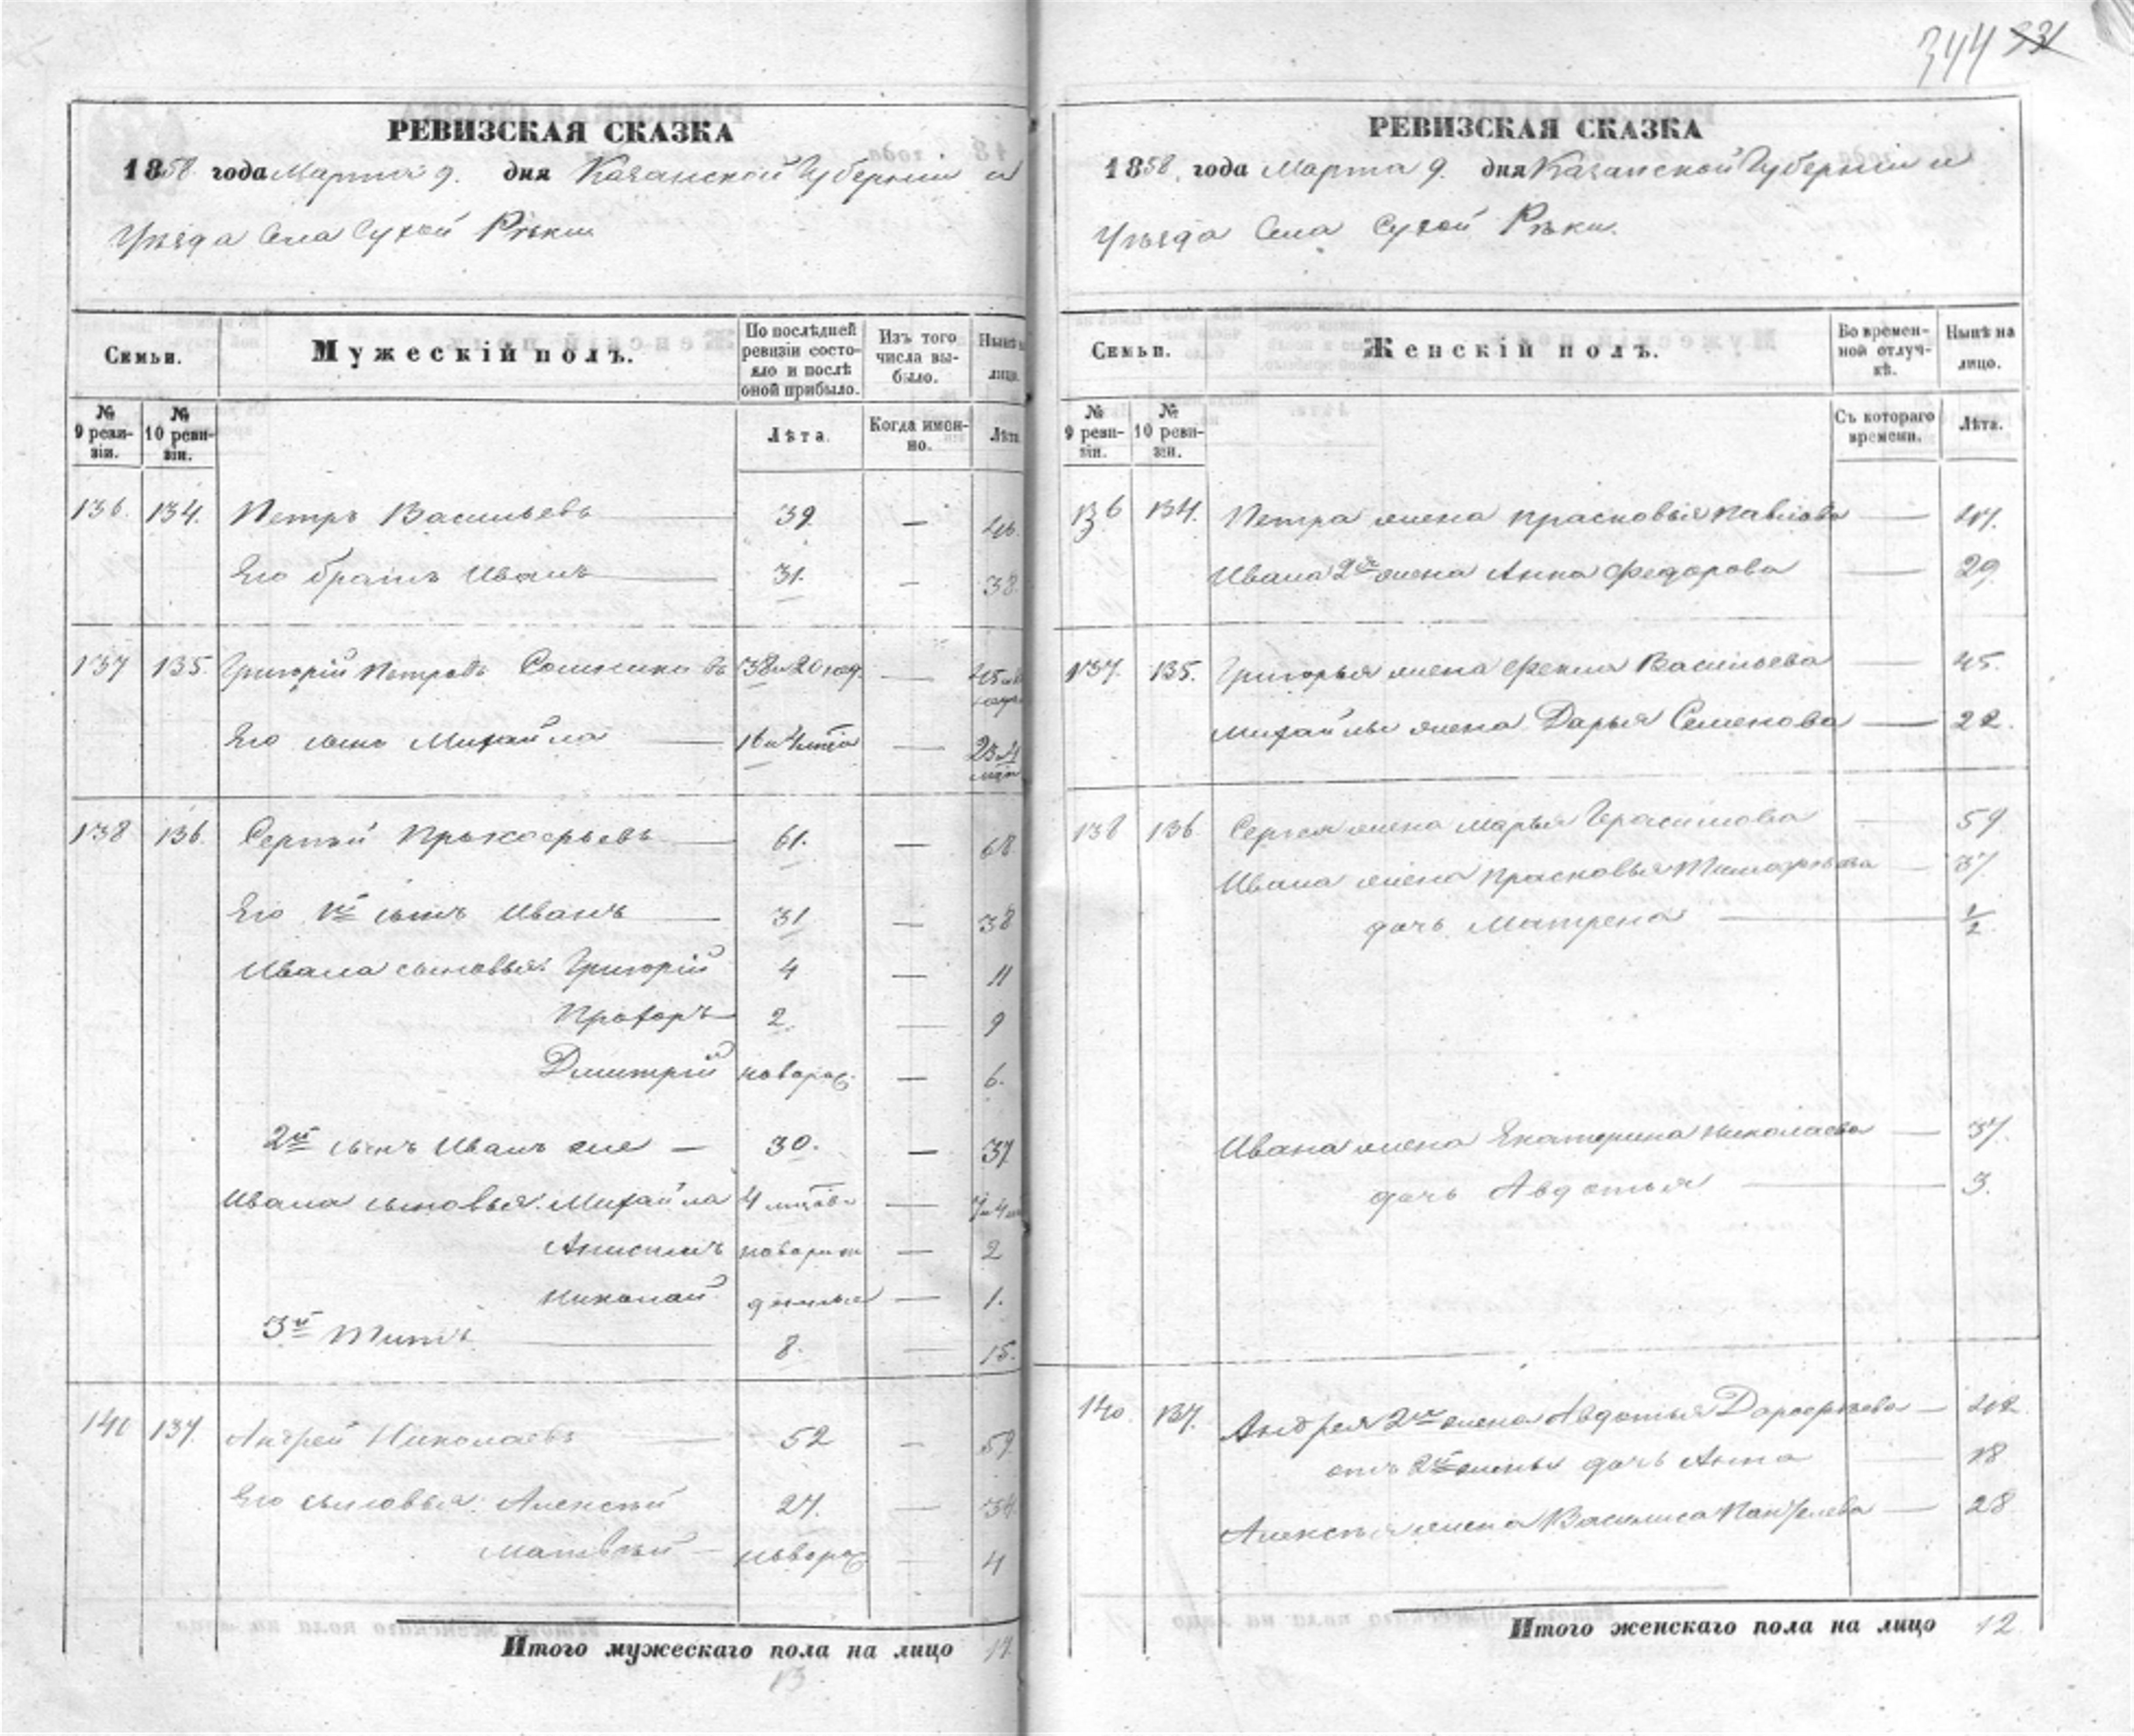 344 331
РЕВИЗСКАЯ СКАЗКА
1858 года Марта 9. дня Казанской Губернии и
Уѣзда Села Сухой Рѣки
Семьи. Мужескій полъ. По послѣдней ревизіи состояло и послѣ оной прибыло. Изъ того числа выбыло. Нынѣ на лицо.
№ 9 ревизіи. № 10 ревизіи. Лѣта. Когда именно. Лѣта.
136. 134. Петръ Васильевъ 39. — 46.
Его братъ Иванъ 31. — 38.
137 135. Григорій Петровъ 38 и 20 —
Его сынъ Михайла 16 и 4 —
138 136. Сергѣй Прокофьевъ 61. — 68
Его 1й сынъ Иванъ 31 — 38
Ивана сыновья: Григорій 4 — 11
Прохоръ 2. — 9
Дмитрій новорож. — 6.
2й сынъ Иванъ же — 30. — 37
Ивана сыновья: Михайла 4 —
Анисимъ новорож — 2
Николай — 1.
3й Титъ 8. — 15.
140 137. Андрей Николаевъ 52 — 59.
Его сыновья: Алексѣй 27. — 34
Матвѣй — новорож — 4
Итого мужескаго пола на лицо 17.
13
РЕВИЗСКАЯ СКАЗКА
1858. года Марта 9. дня Казанской Губерніи и
Уѣзда Села Сухой Рѣки.
Семьи. Женскій полъ. Во временной отлучкѣ. Нынѣ на лицо.
№ 9 ревизіи. № 10 ревизіи. Съ котораго времени. Лѣта.
136 134. Петра жена Прасковья Павлова — 47.
Ивана 2я жена Анна Федорова — 29.
137. 135. Григорья жена Фекла Васильева — 45.
Михайлы жена Дарья Семенова — 22.
138 136. Сергея жена Марья Герасимова — 59.
Ивана жена Прасковья Тимофеева — 37
дочь Матрена — 1/2
Ивана жена Екатерина Николаева — 37.
дочь Авдотья — 3.
140. 137. Андрея 2я жена Авдотья Дорофеева — 42.
отъ 2й жены дочь Анна — 18
Алексѣя жена Василиса — 28
Итого женскаго пола на лицо 12.